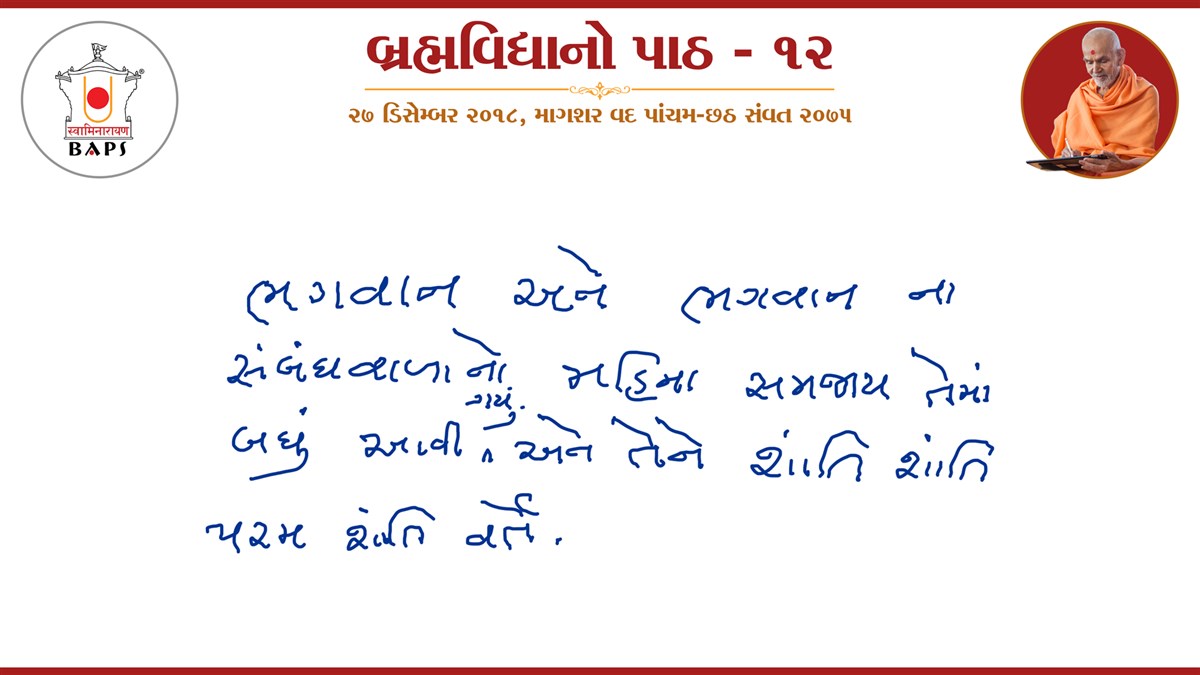 બ્રહ્મવિદ્યાનો પાઠ - ૧૨
૨૭ ડિસેમ્બર ૨૦૧૮, માગશર વદ પાંચમ-છઠ સંવત ૨૦૭૫
स्वामिनारायण
BAPS
ભગવાન અને ભગવાન ના
સંબંધવાળાનો મહિમા સમજાય તેમાં
બધું આવી ગયું. અને તેને શાંતિ શાંતિ
પરમ શાંતિ વર્તે.